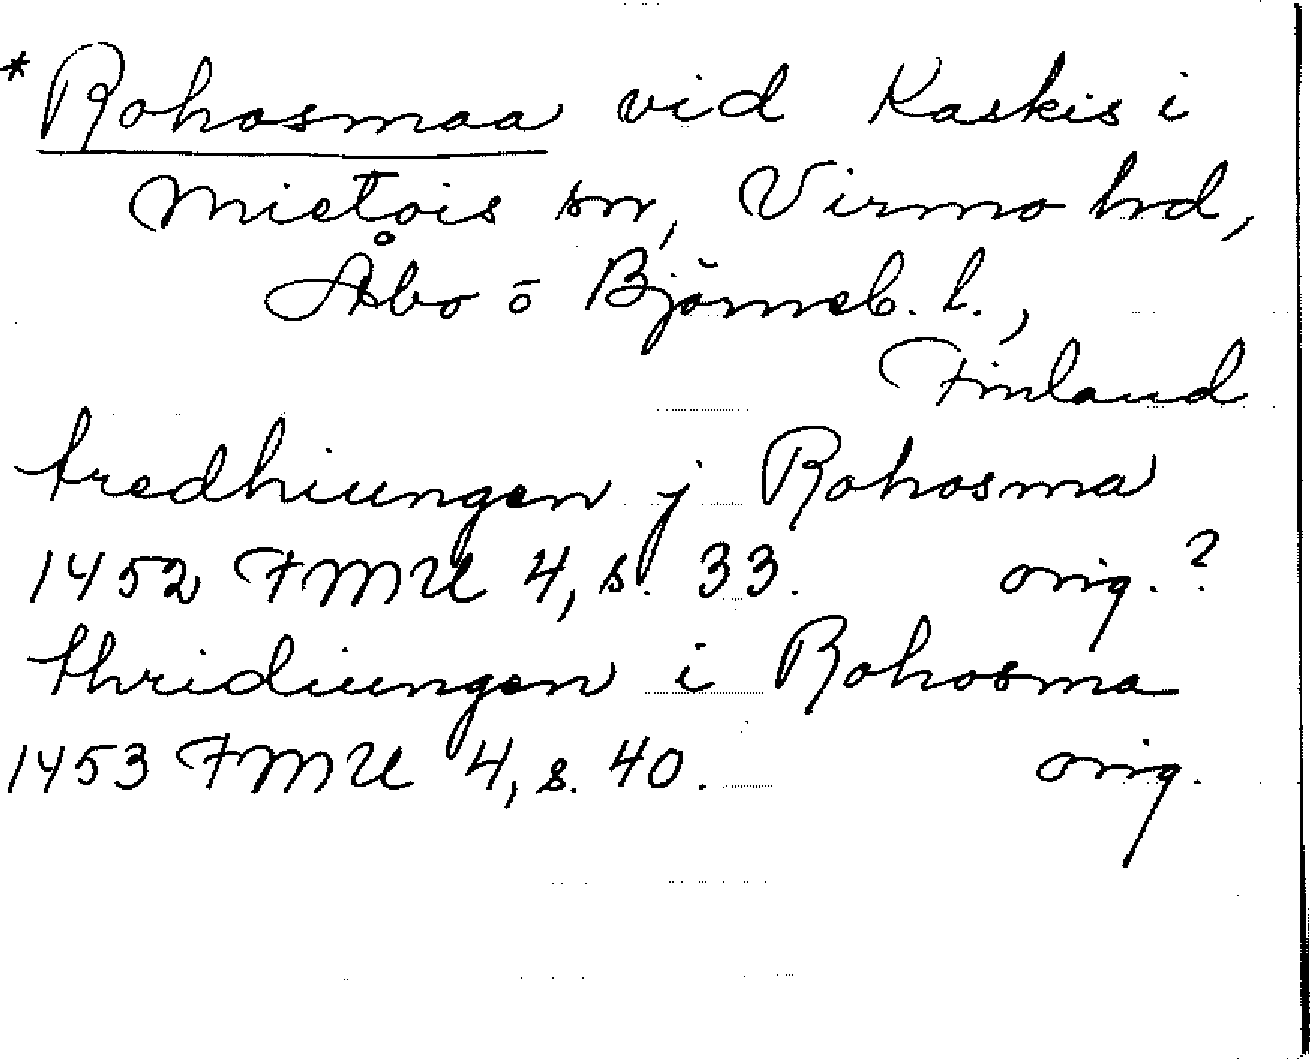 * Rohosmaa vid Kaskis i
Mietois sn, Virmo hrd,
Åbo o Björneb. l.,
Finland
tredhiungen j Rohosma
1452 FMU 4, s. 33. orig.?
thridiungen i Rohosma
1453 FMU 4, s. 40. orig.